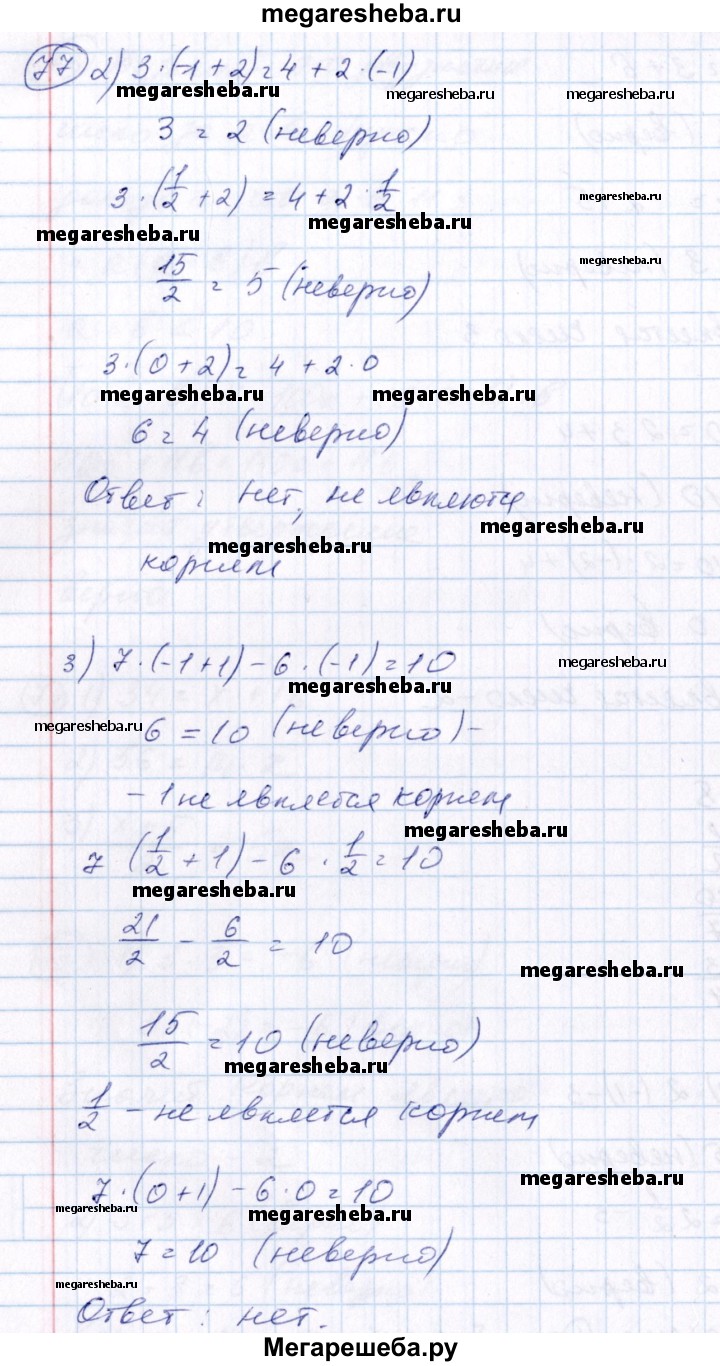 megaresheba.ru
77 2) 3·(-1+2)=4+2·(-1)
megaresheba.ru megaresheba.ru megaresheba.ru
3 = 2 (неверно)
3·(1/2+2)=4+2·1/2
megaresheba.ru
megaresheba.ru
megaresheba.ru
15/2 = 5 (неверно)
megaresheba.ru
3·(0+2)=4+2·0
megaresheba.ru megaresheba.ru
6=4 (неверно)
Ответ: нет, не являются
megaresheba.ru
megaresheba.ru
корнем
3) 7·(-1+1)-6·(-1)=10
megaresheba.ru
megaresheba.ru
megaresheba.ru
6=10 (неверно)-
-1 не является корнем
megaresheba.ru
7 (1/2+1)-6·1/2=10
megaresheba.ru
21/2 - 6/2 = 10
megaresheba.ru
15/2 =10 (неверно)
megaresheba.ru
1/2 - не является корнем
megaresheba.ru
7·(0+1)-6·0=10
megaresheba.ru
megaresheba.ru
7=10 (неверно)
megaresheba.ru
Ответ: нет.
Мегарешеба.ру